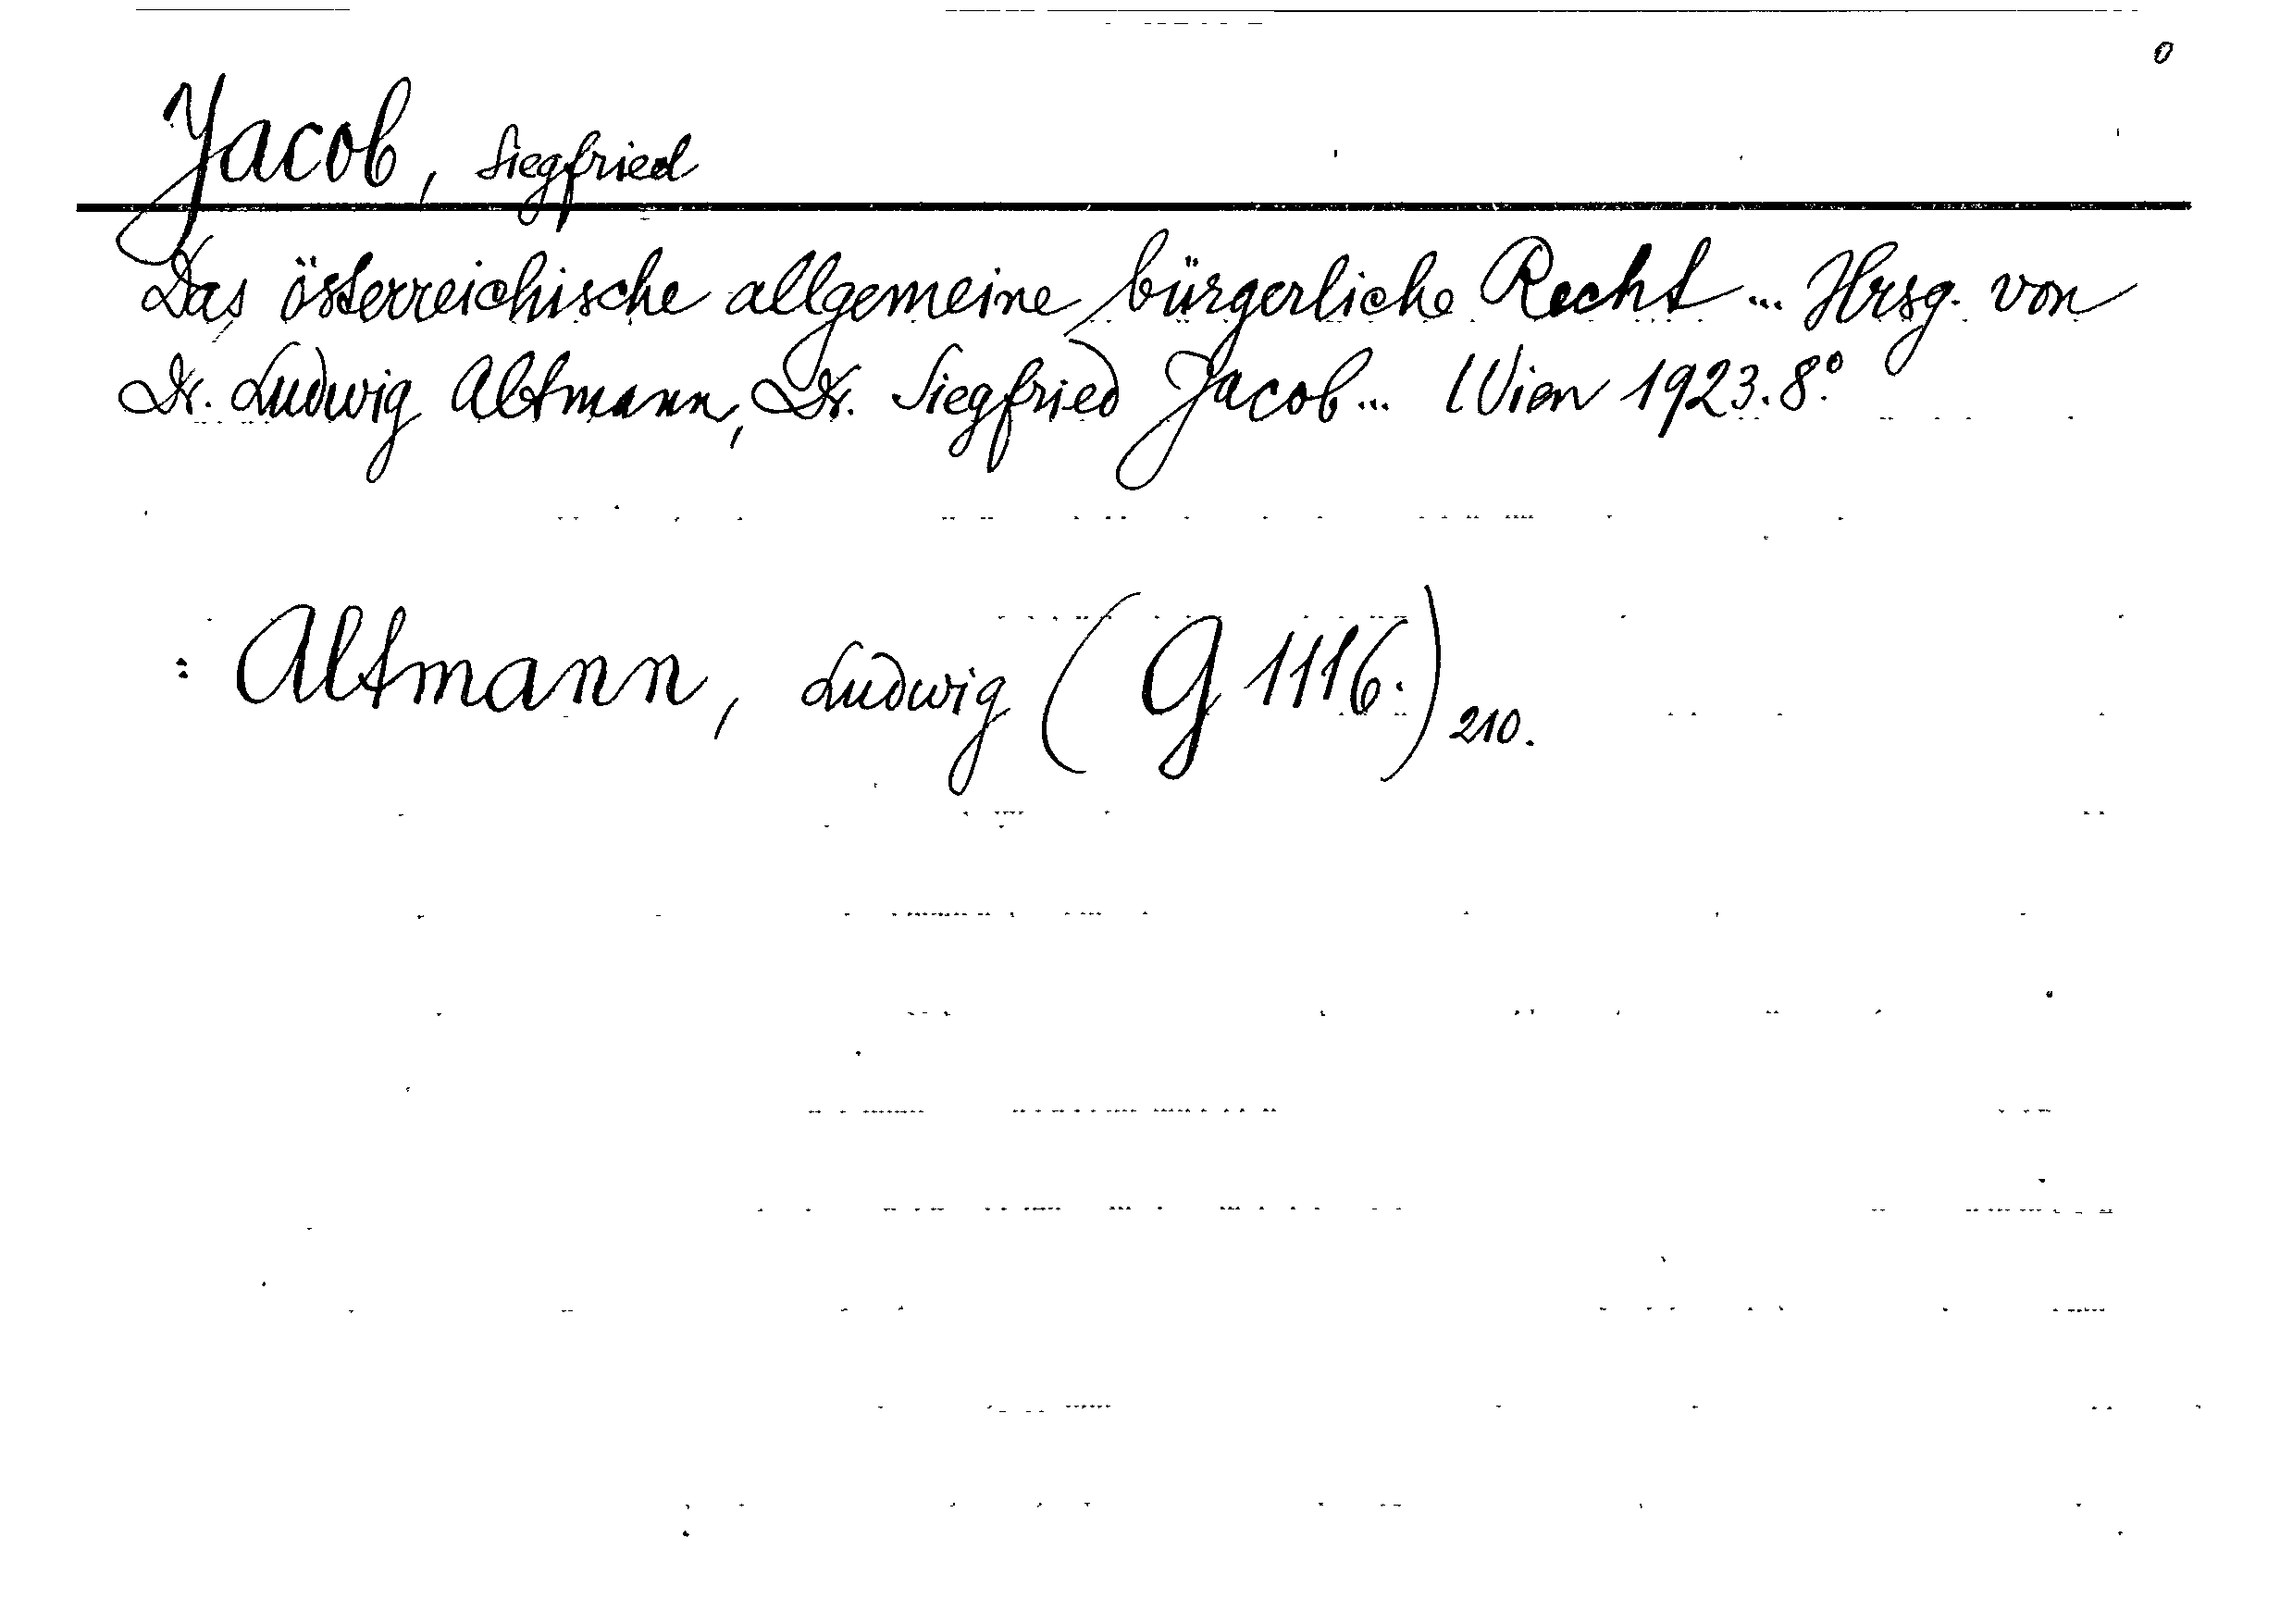 0
Jacob, Siegfried
Das österreichische allgemeine bürgerliche Recht ... Hrsg. von
Dr. Ludwig Altmann, Dr. Siegfried Jacob ... Wien 1923. 8.°
: Altmann, Ludwig (G 1116.) 210.